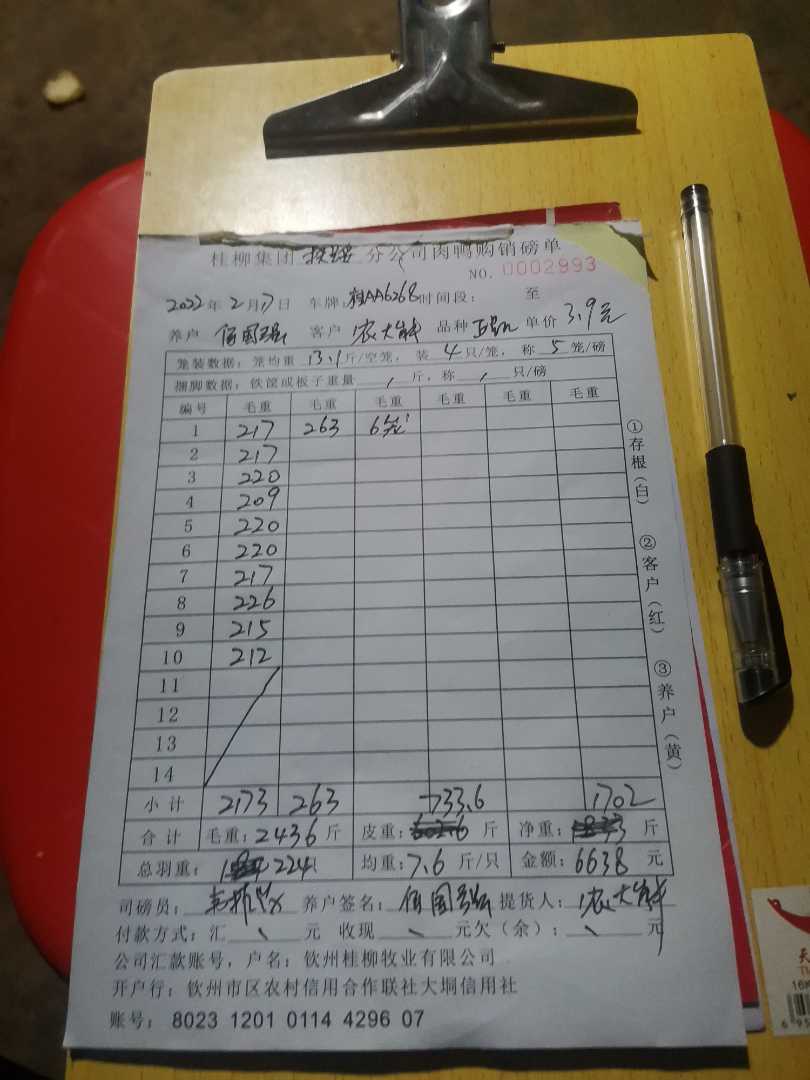 桂柳集团 分公司肉鸭购销磅单
NO. 0002993
2022年2月17日 车牌:桂AA6268时间段: 至
养户 伍国强 客户 农大 品种 单价 3.9元
笼装数据:笼均重 13.1斤/空笼,装 4 只/笼,称 5 笼/磅
捆脚数据:铁筐或板子重量 / 斤,称 / 只/磅
编号 毛重 毛重 毛重 毛重 毛重 毛重
1 217 263 6笼
2 217
3 220
4 209
5 220
6 220
7 217
8 226
9 215
10 212
11
12
13
14
小计 2173 263 733.6 1702
合计 毛重:2436斤 皮重: 斤 净重: 斤
总羽重: 224 均重:7.6 斤/只 金额:6638 元
司磅员: 养户签名:伍国强 提货人:农大
付款方式:汇 元 收现 元欠(余): 元
公司汇款账号,户名:钦州桂柳牧业有限公司
开户行:钦州市区农村信用合作联社大垌信用社
账号:8023 1201 0114 4296 07
①存根(白)
②客户(红)
③养户(黄)